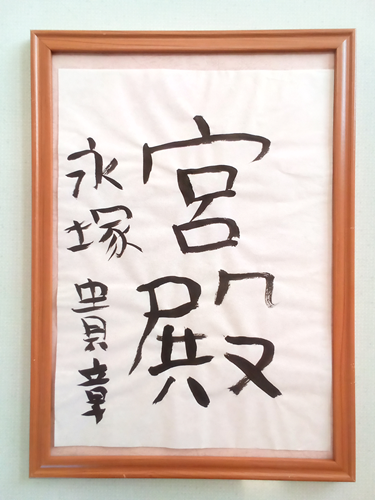 宮殿
永塚貴章